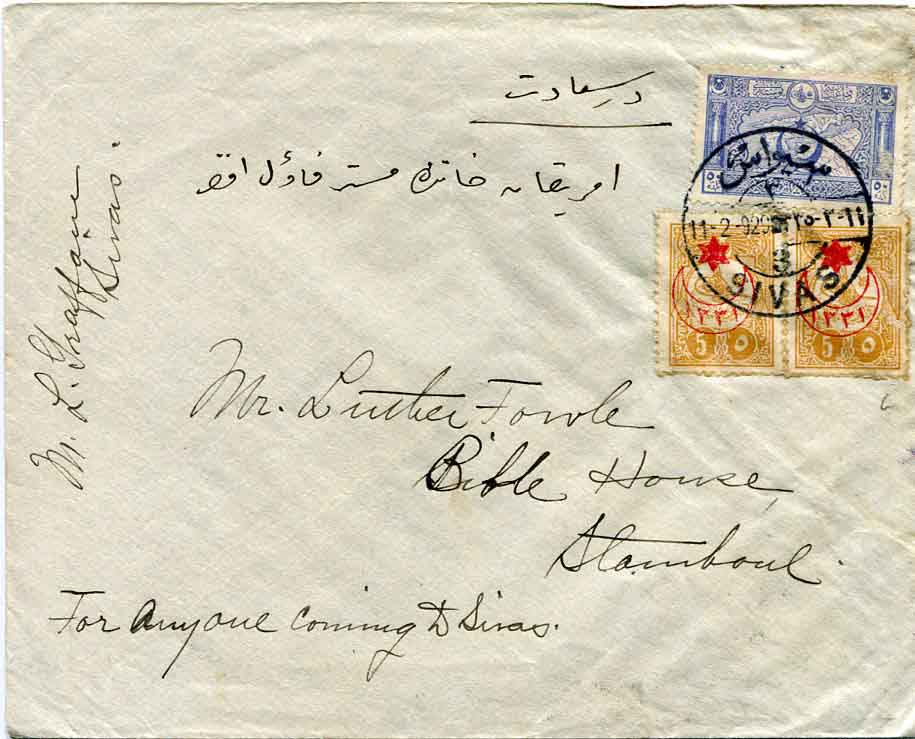 در سعادت
امریقان خاننده مستر فاول افندی
سیواس
11-2-929
٣٥-٢-١١
3
SIVAS
١٣٣١
١٣٣١
5 ٥
5 ٥
M. L. Graffam
Sivas.
Mr. Luther Fowle
Bible House,
Stamboul.
For anyone coming to Sivas.